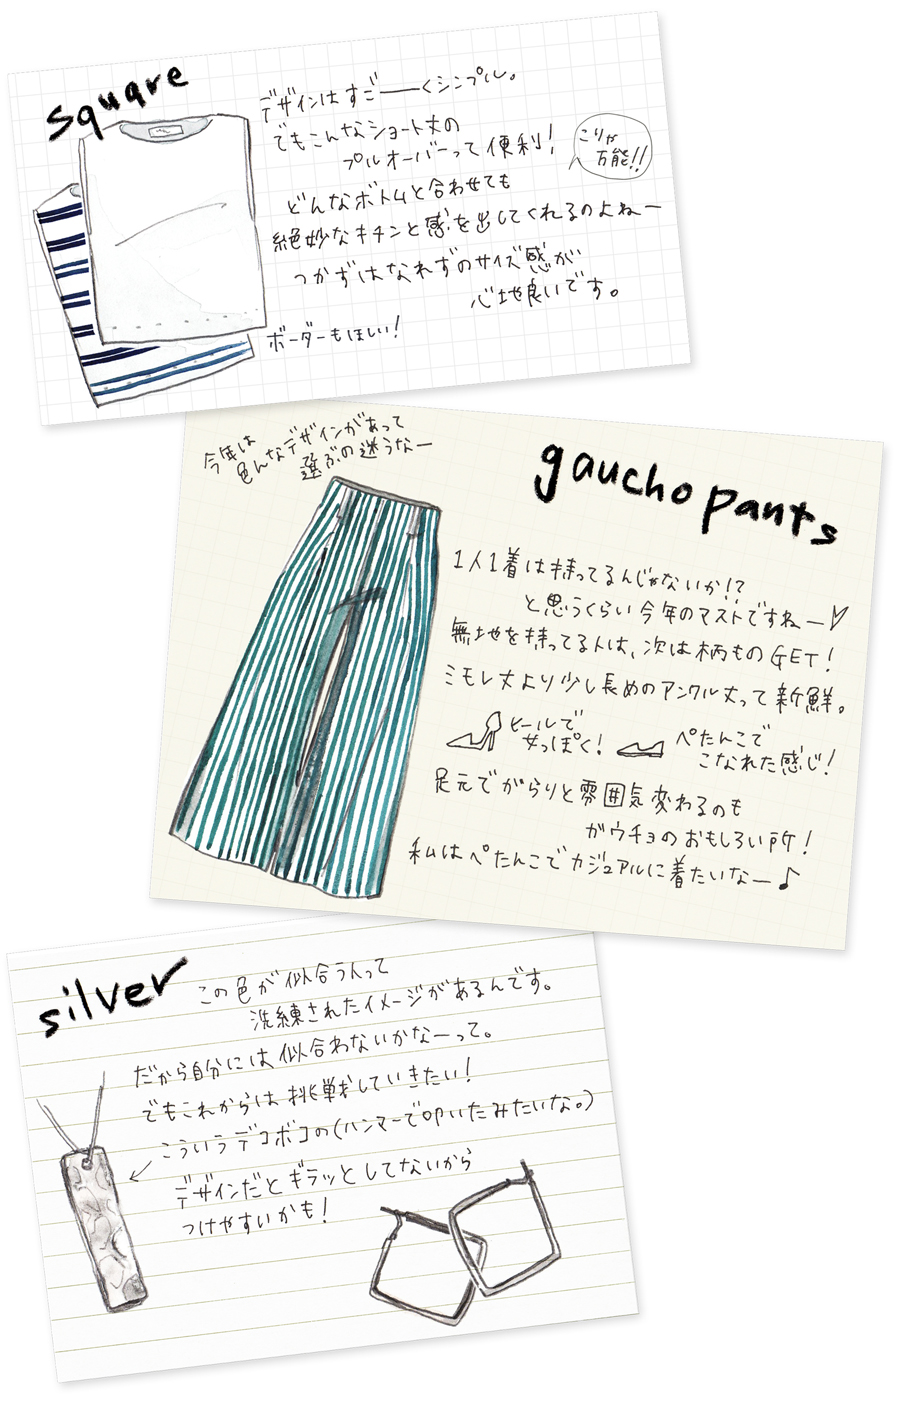 square
デザインはすご――くシンプル。
でもこんなショート丈の
プルオーバーって便利!
こりゃ
万能!!
どんなボトムと合わせても
絶妙なキチンと感を出してくれるのよねー
つかずはなれずのサイズ感が
心地良いです。
ボーダーもほしい!
今年は
色んなデザインがあって
選ぶの迷うなー
gaucho pants
1人1着は持ってるんじゃないか!?
と思うくらい今年のマストですねー♡
無地を持ってる人は、次は柄ものGET!
ミモレ丈より少し長めのアンクル丈って新鮮。
ヒールで
女っぽく!
ぺたんこで
こなれた感じ!
足元でがらりと雰囲気変わるのも
ガウチョのおもしろい所!
私はぺたんこでカジュアルに着たいなー♪
silver
この色が似合う人って
洗練されたイメージがあるんです。
だから自分には似合わないかなーって。
でもこれからは挑戦していきたい!
こういうデコボコの(ハンマーで叩いたみたいな。)
デザインだとギラッとしてないから
つけやすいかも!